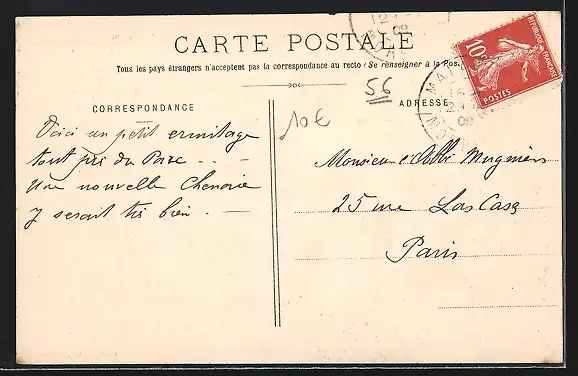 CARTE POSTALE
Tous les pays étrangers n'acceptent pas la correspondance au recto (Se renseigner à la Pos
CORRESPONDANCE
ADRESSE
56
10€
RÉPUBLIQUE FRANÇAISE
10c
POSTES
Voici un petit ermitage
tout près du Parc . . -
Une nouvelle Chenaie
y serait très bien . —
Monsieur l'Abbé Mugnier
25 rue Las Casas
Paris